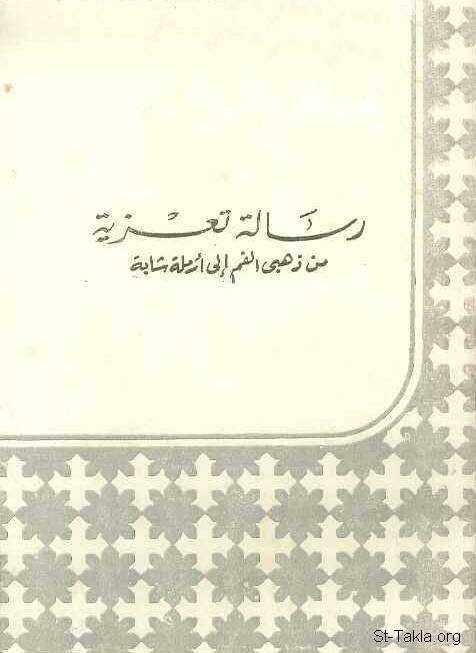 رسَالة تعْزية
من ذهبى الفم إلى أرملة شابة
St-Takla.org